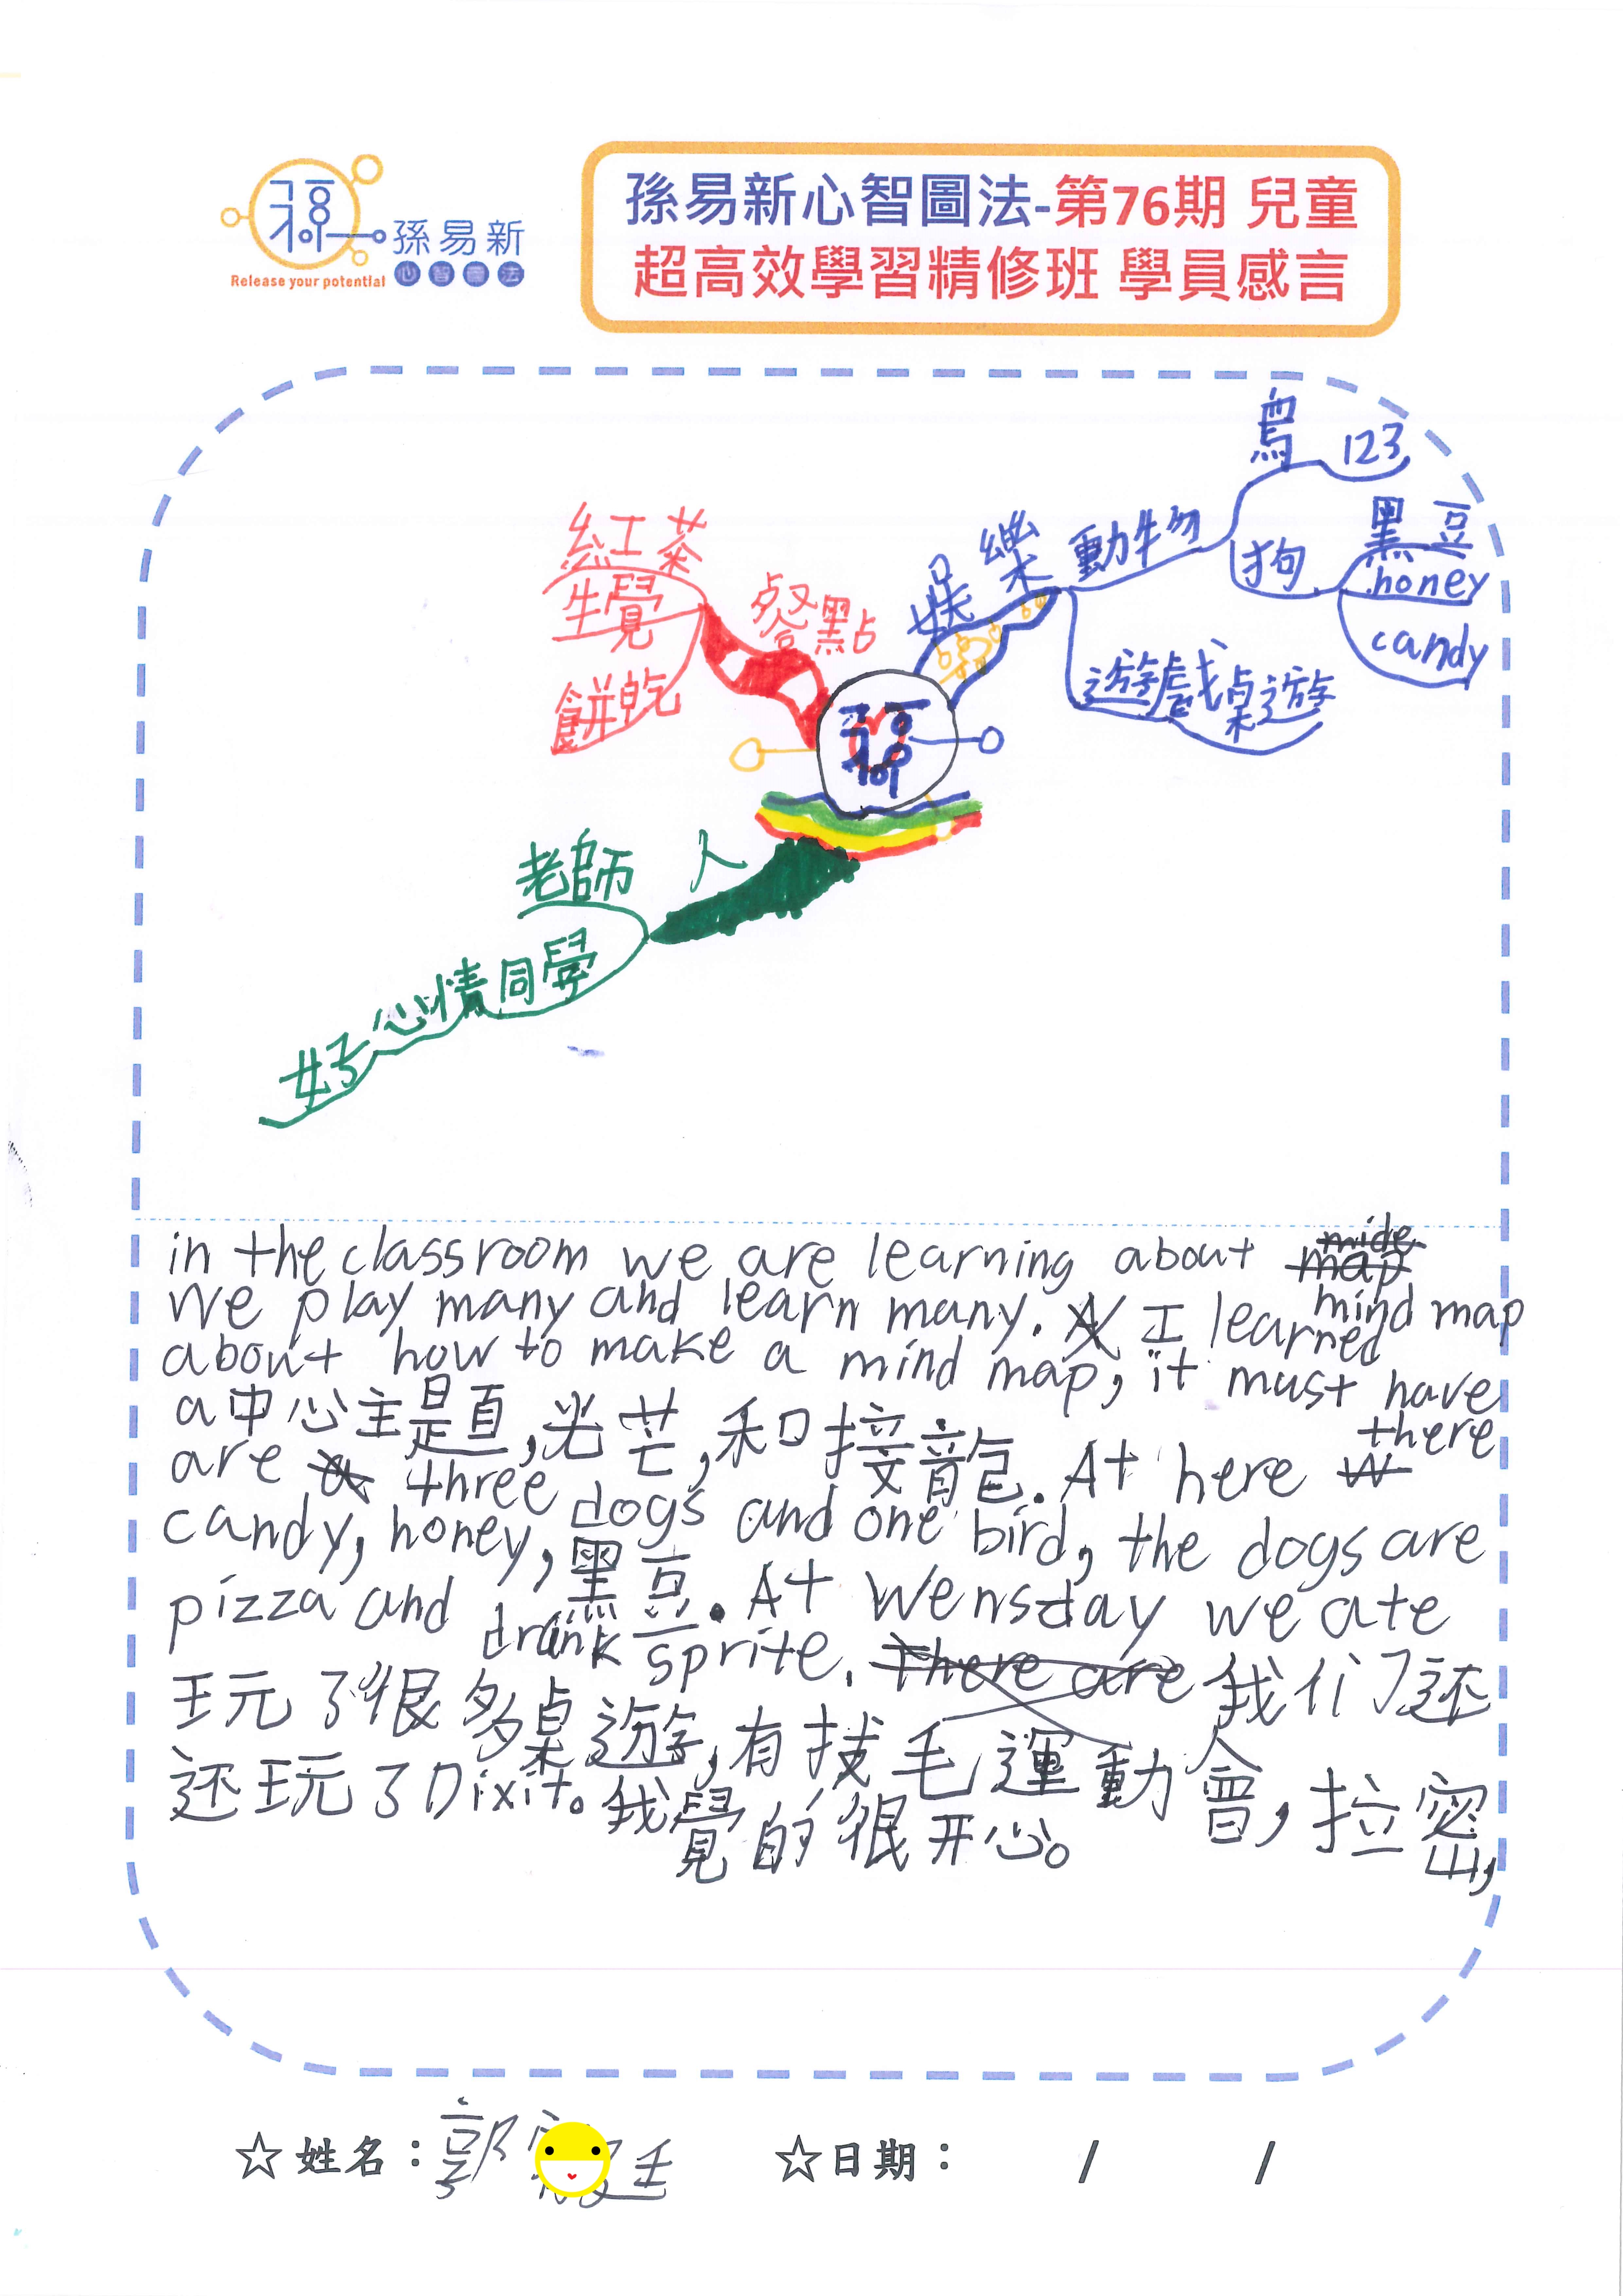 孫易新
心智圖法
Release your potential
孫易新心智圖法-第76期 兒童
超高效學習精修班 學員感言
鳥 123
黑豆
狗 honey
candy
娛樂 動物
遊戲桌遊
紅茶
餐點
餅乾
老師 人
同學
心情
好
in the classroom we are learning about mind map
we play many and learn many. I learned
about how to make a mind map, it must have
a 中心主題,光芒,和接龍. At here there
are three dogs and one bird, the dogs are
candy, honey, 黑豆. At Wensday we ate
pizza and drank sprite. 我们还
玩了很多桌遊,有拔毛運動會,拉密,
还玩了Dixit。我覺的很开心。
☆姓名: 郭 廷 ☆日期: / /